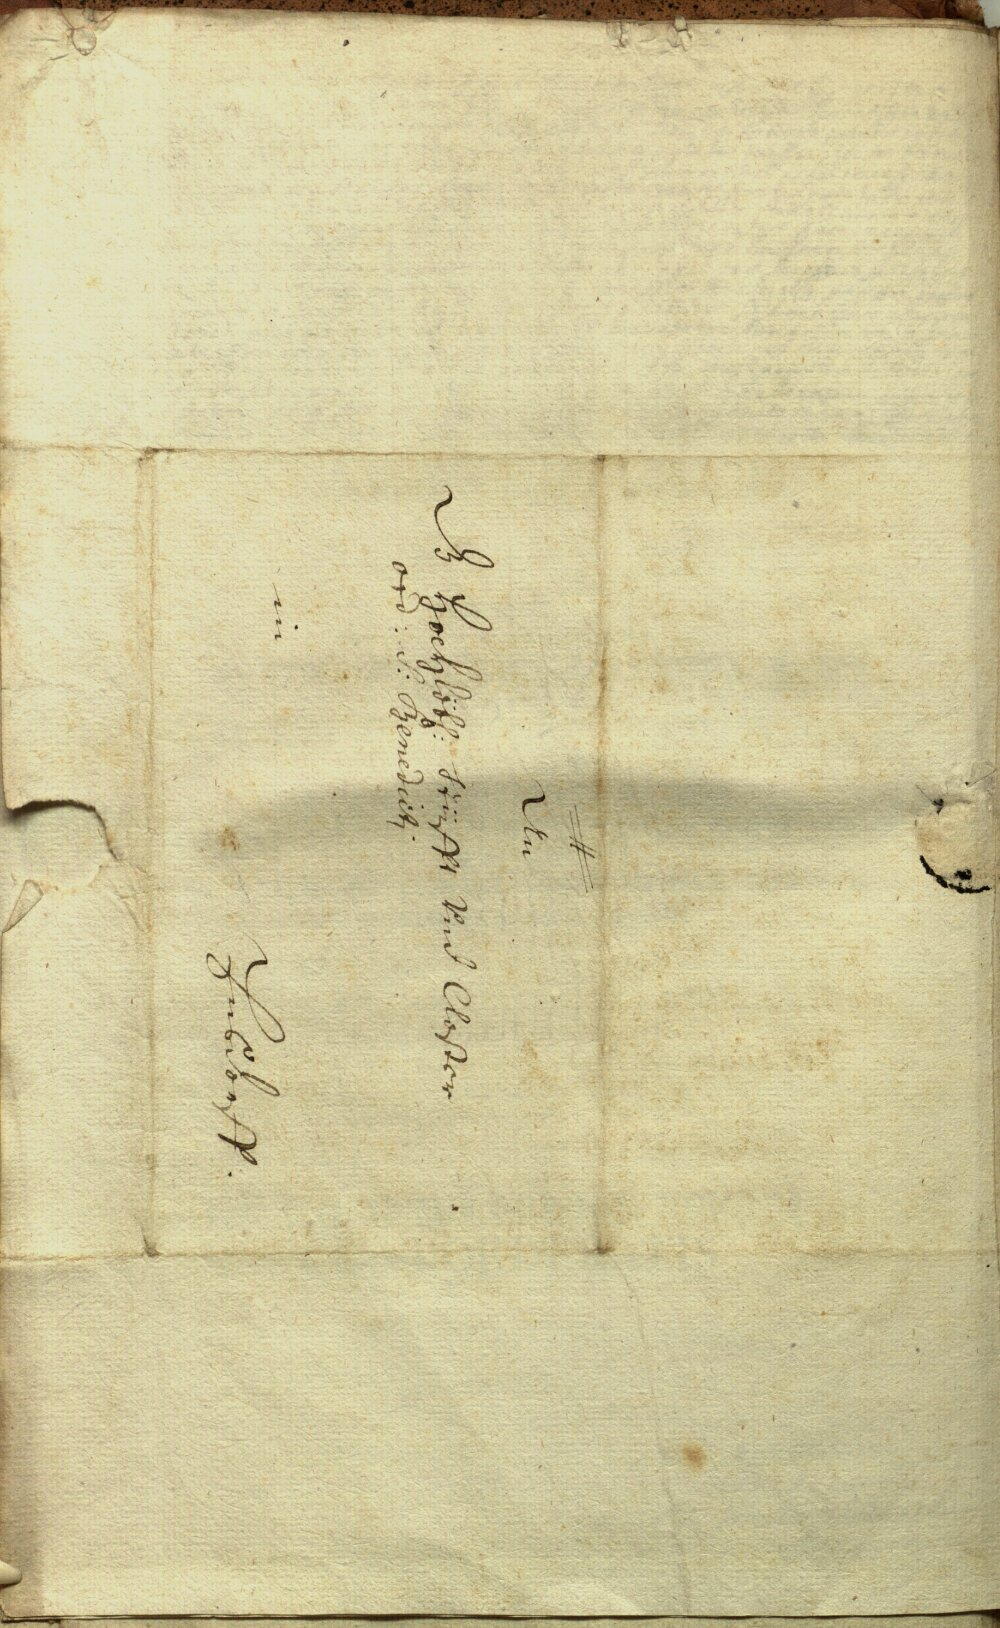 An
Hochlöbl: Stüfft und Closter
ord: S: Benedictj
in